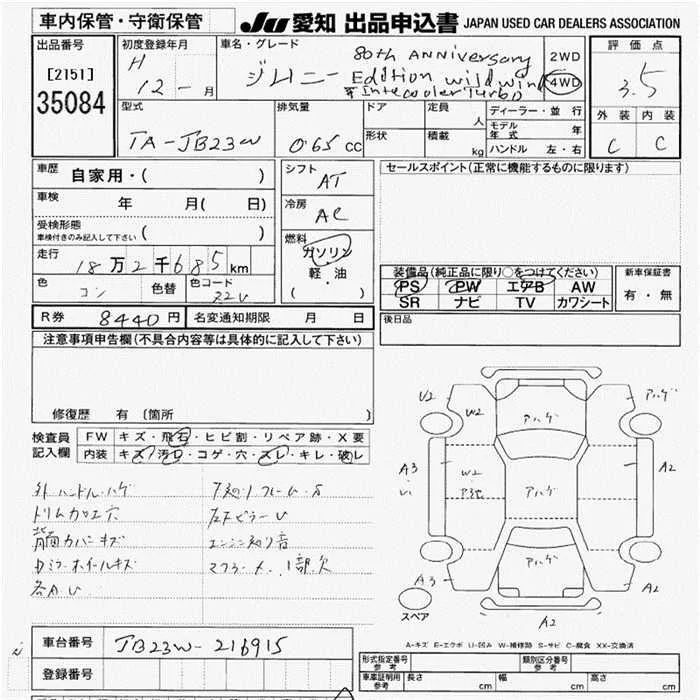 車内保管・守衛保管
JU 愛知 出品申込書 JAPAN USED CAR DEALERS ASSOCIATION
出品番号
[2151]
35084
初度登録年月
H
12 - 月
車名・グレード
ジムニー
80th ANNIVERSARY
Edition wild wind
2WD
4WD
評価点
3.5
外装 内装
C C
型式
TA-JB23W
排気量
0.65 cc
ドア
形状
定員 人
積載 kg
ディーラー・並行
モデル年式 年
ハンドル 左・右
車歴
自家用・( )
車検 年 月( 日)
受検形態
車検付きのみ記入して下さい ( )
走行
18万2千685km
色
コン
色替
色コード
ZZU
シフト
AT
冷房
AC
燃料
ガソリン
軽・油
( )
セールスポイント(正常に機能するものに限ります)
装備品(純正品に限り○をつけてください)
PS PW エアB AW
SR ナビ TV カワシート
新車保証書
有・無
R券 8440円 名変通知期限 月 日
後日品
注意事項申告欄(不具合内容等は具体的に記入して下さい)
修復歴 有 〔箇所 〕
検査員
記入欄
FW キズ・飛石・ヒビ割・リペア跡・X要
内装 キズ・汚れ・コゲ・穴・スレ・キレ・破レ
外ハンドル・ハゲ
トリム加工穴
背面カバーキズ
ドミラーホイールキズ
各所U
左下ピラーU
エンジン廻り音
マフラー欠
U2
W2
アハゲ
アハゲ
A3
W2
アハゲ
A2
アハゲ
A3
A2
A2
スペア
A-キズ E-エクボ U-凹み W-補修跡 S-サビ C-腐食 XX-交換済
車台番号 JB23W-216915
登録番号
形式指定番号
参考
類別区分番号
参考
車庫証明用
参考
長さ cm 幅 cm 高さ cm